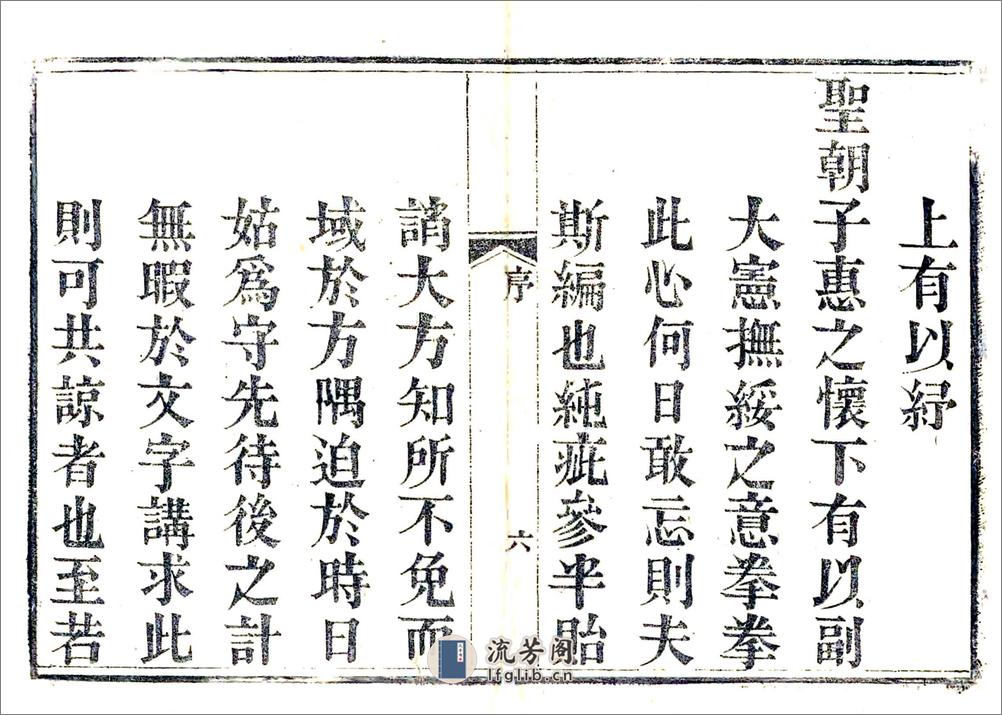 上有以紓
聖朝子惠之懷下有以副
大憲撫綏之意拳拳
此心何日敢忘則夫
斯編也純疵參半貽
序
六
誚大方知所不免而
域於方隅迫於時日
姑爲守先待後之計
無暇於文字講求此
則可共諒者也至若
流芳阁
lfglib.cn